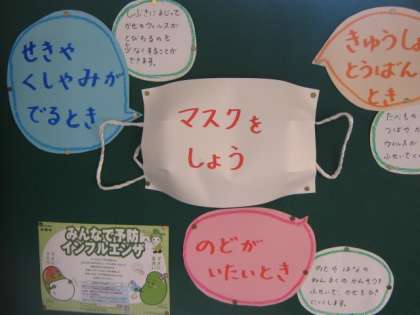 せきや
くしゃみが
でるとき
しぶきにまじって
かぜのウィルスが
とびちるのを
少なくすることが
できます。
マスクを
しょう
きゅうしょ
とうばん
とき
たべもの
つばや
ウィルスが
のどが
いたいとき
のどや はなの
ねんまくの かんそうを
ふせいで、かぜをひき
にくくします。
みんなで予防
インフルエンザ